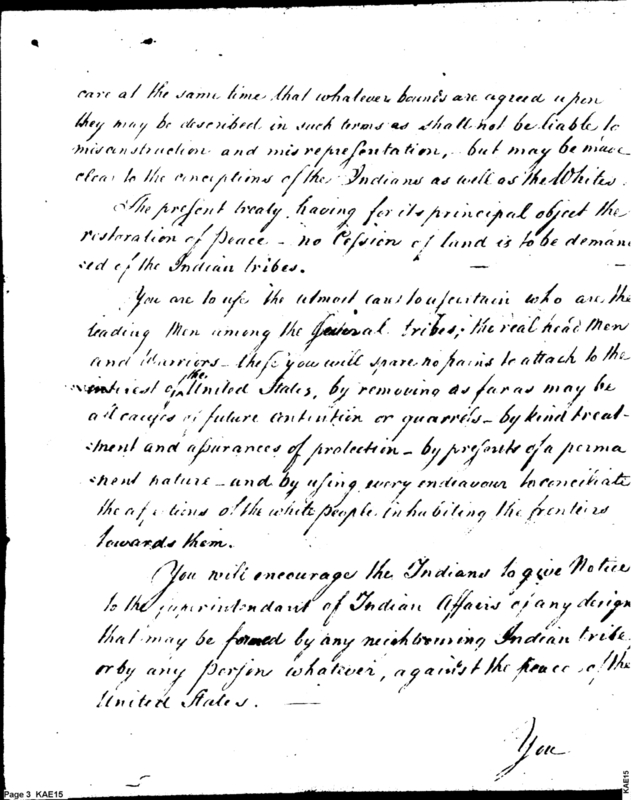 care at the same time that whatever bounds are agreed upon
they may be described in such terms as shall not be liable to
misconstruction and misrepresentation, but may be made
clear to the conceptions of the Indians as well as the Whites
The present treaty having for its principal object the
restoration of Peace - no Cession of land is to be deman
=ded of the Indian tribes. — —
You are to use the utmost care to ascertain who are the
leading Men among the several tribes; the real head Men
and Warriors - these you will spare no pains to attach to the
interest of the United States, by removing as far as may be
all causes of future contention or quarrels - by kind treat-
=ment and assurances of protection - by presents of a perma
=nent nature - and by using every endeavour to conciliate
the affections of the white people inhabiting the frontiers
towards them.
You will encourage the Indians to give Notice
to the superintendant of Indian Affairs of any design
that may be formed by any neighbouring Indian tribe,
or by any person whatever, against the peace of the
United States. —
You
Page 3 KAE15
KAE15